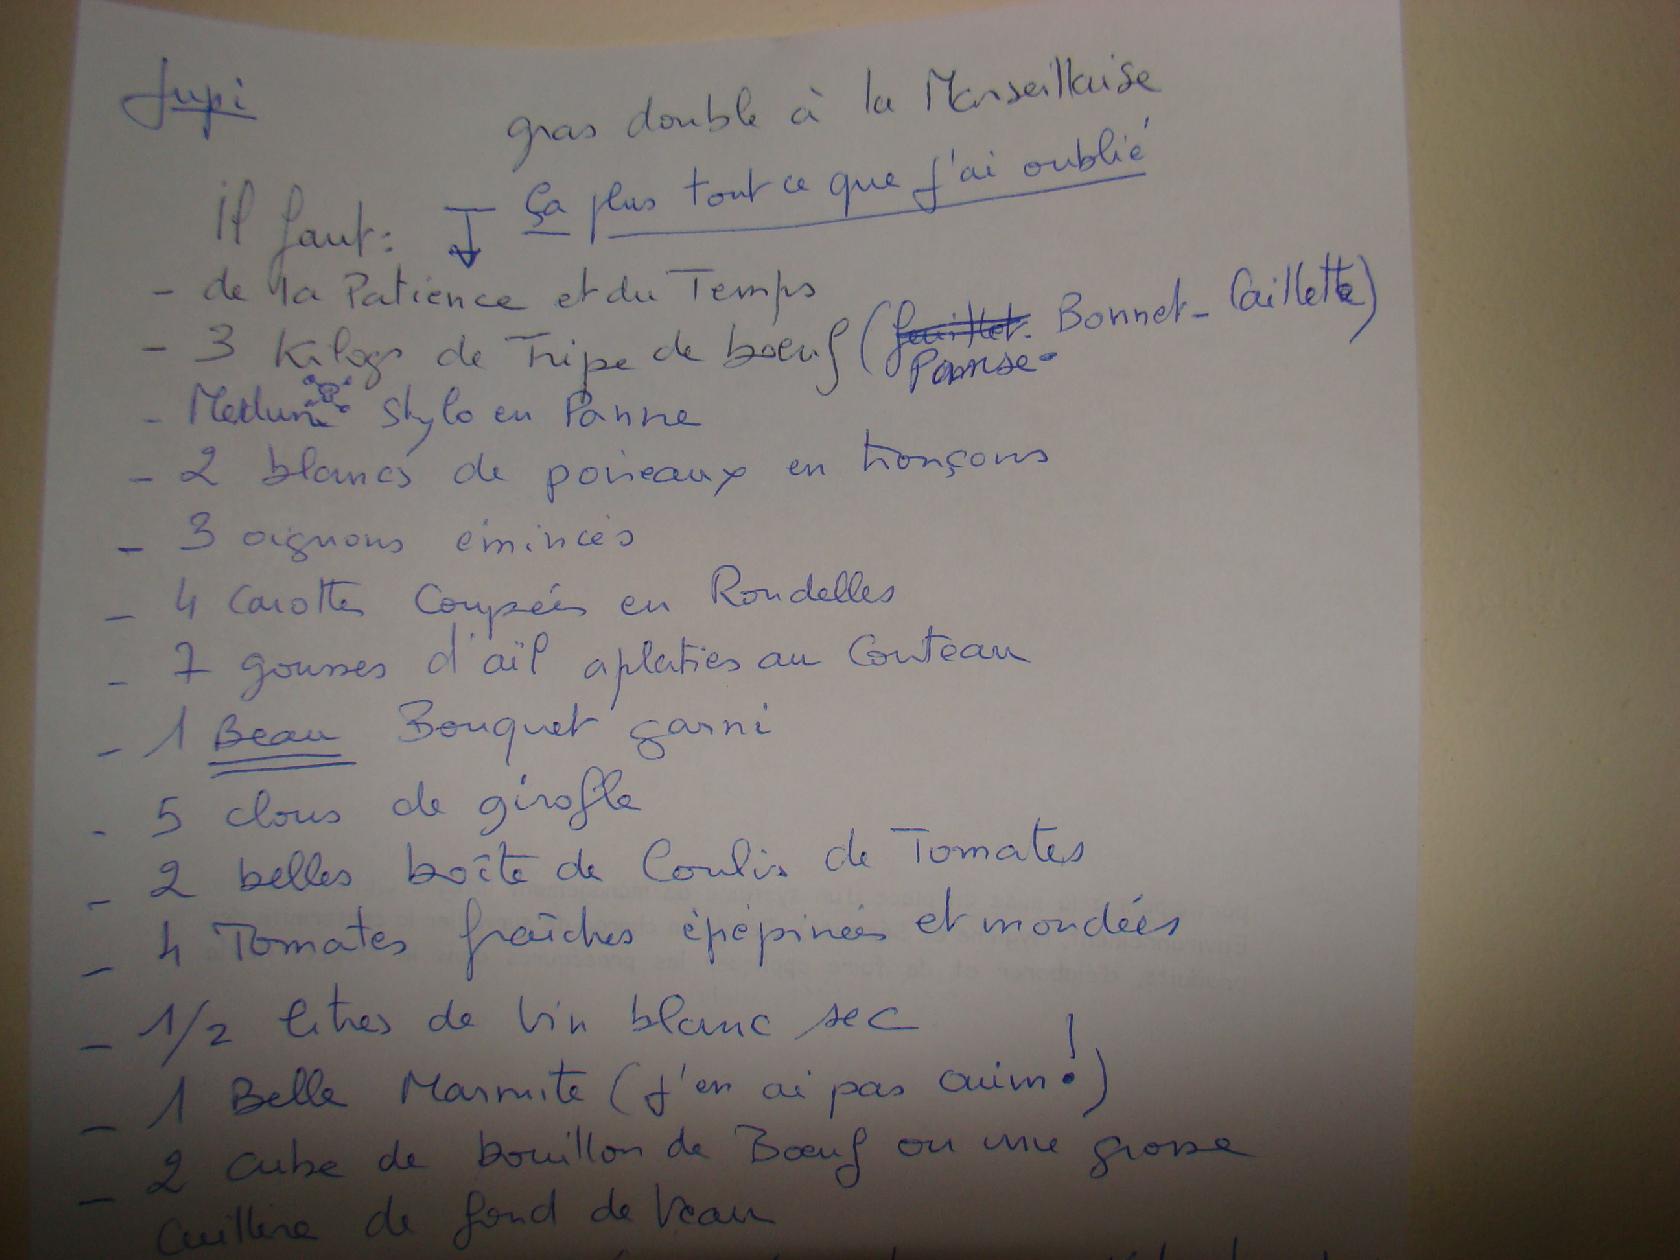 Jupi
gras double à la Marseillaise
Il faut: Ça plus tout ce que j'ai oublié
- de la Patience et du Temps
- 3 Kilogs de Tripe de boeuf (feuillet. Bonnet - Caillette)
Panse -
- Stylo en Panne
- 2 blancs de poireaux en tronçons
- 3 oignons émincés
- 4 Carottes Coupées en Rondelles
- 7 gousses d'aïl aplaties au Couteau
- 1 Beau Bouquet garni
- 5 clous de girofle
- 2 belles boîte de Coulis de Tomates
- 4 Tomates fraîches épépinées et mondées
- 1/2 litres de Vin blanc sec
- 1 Belle Marmite (J'en ai pas auim!)
- 2 cube de bouillon de Boeuf ou une grosse
Cuillère de fond de Veau